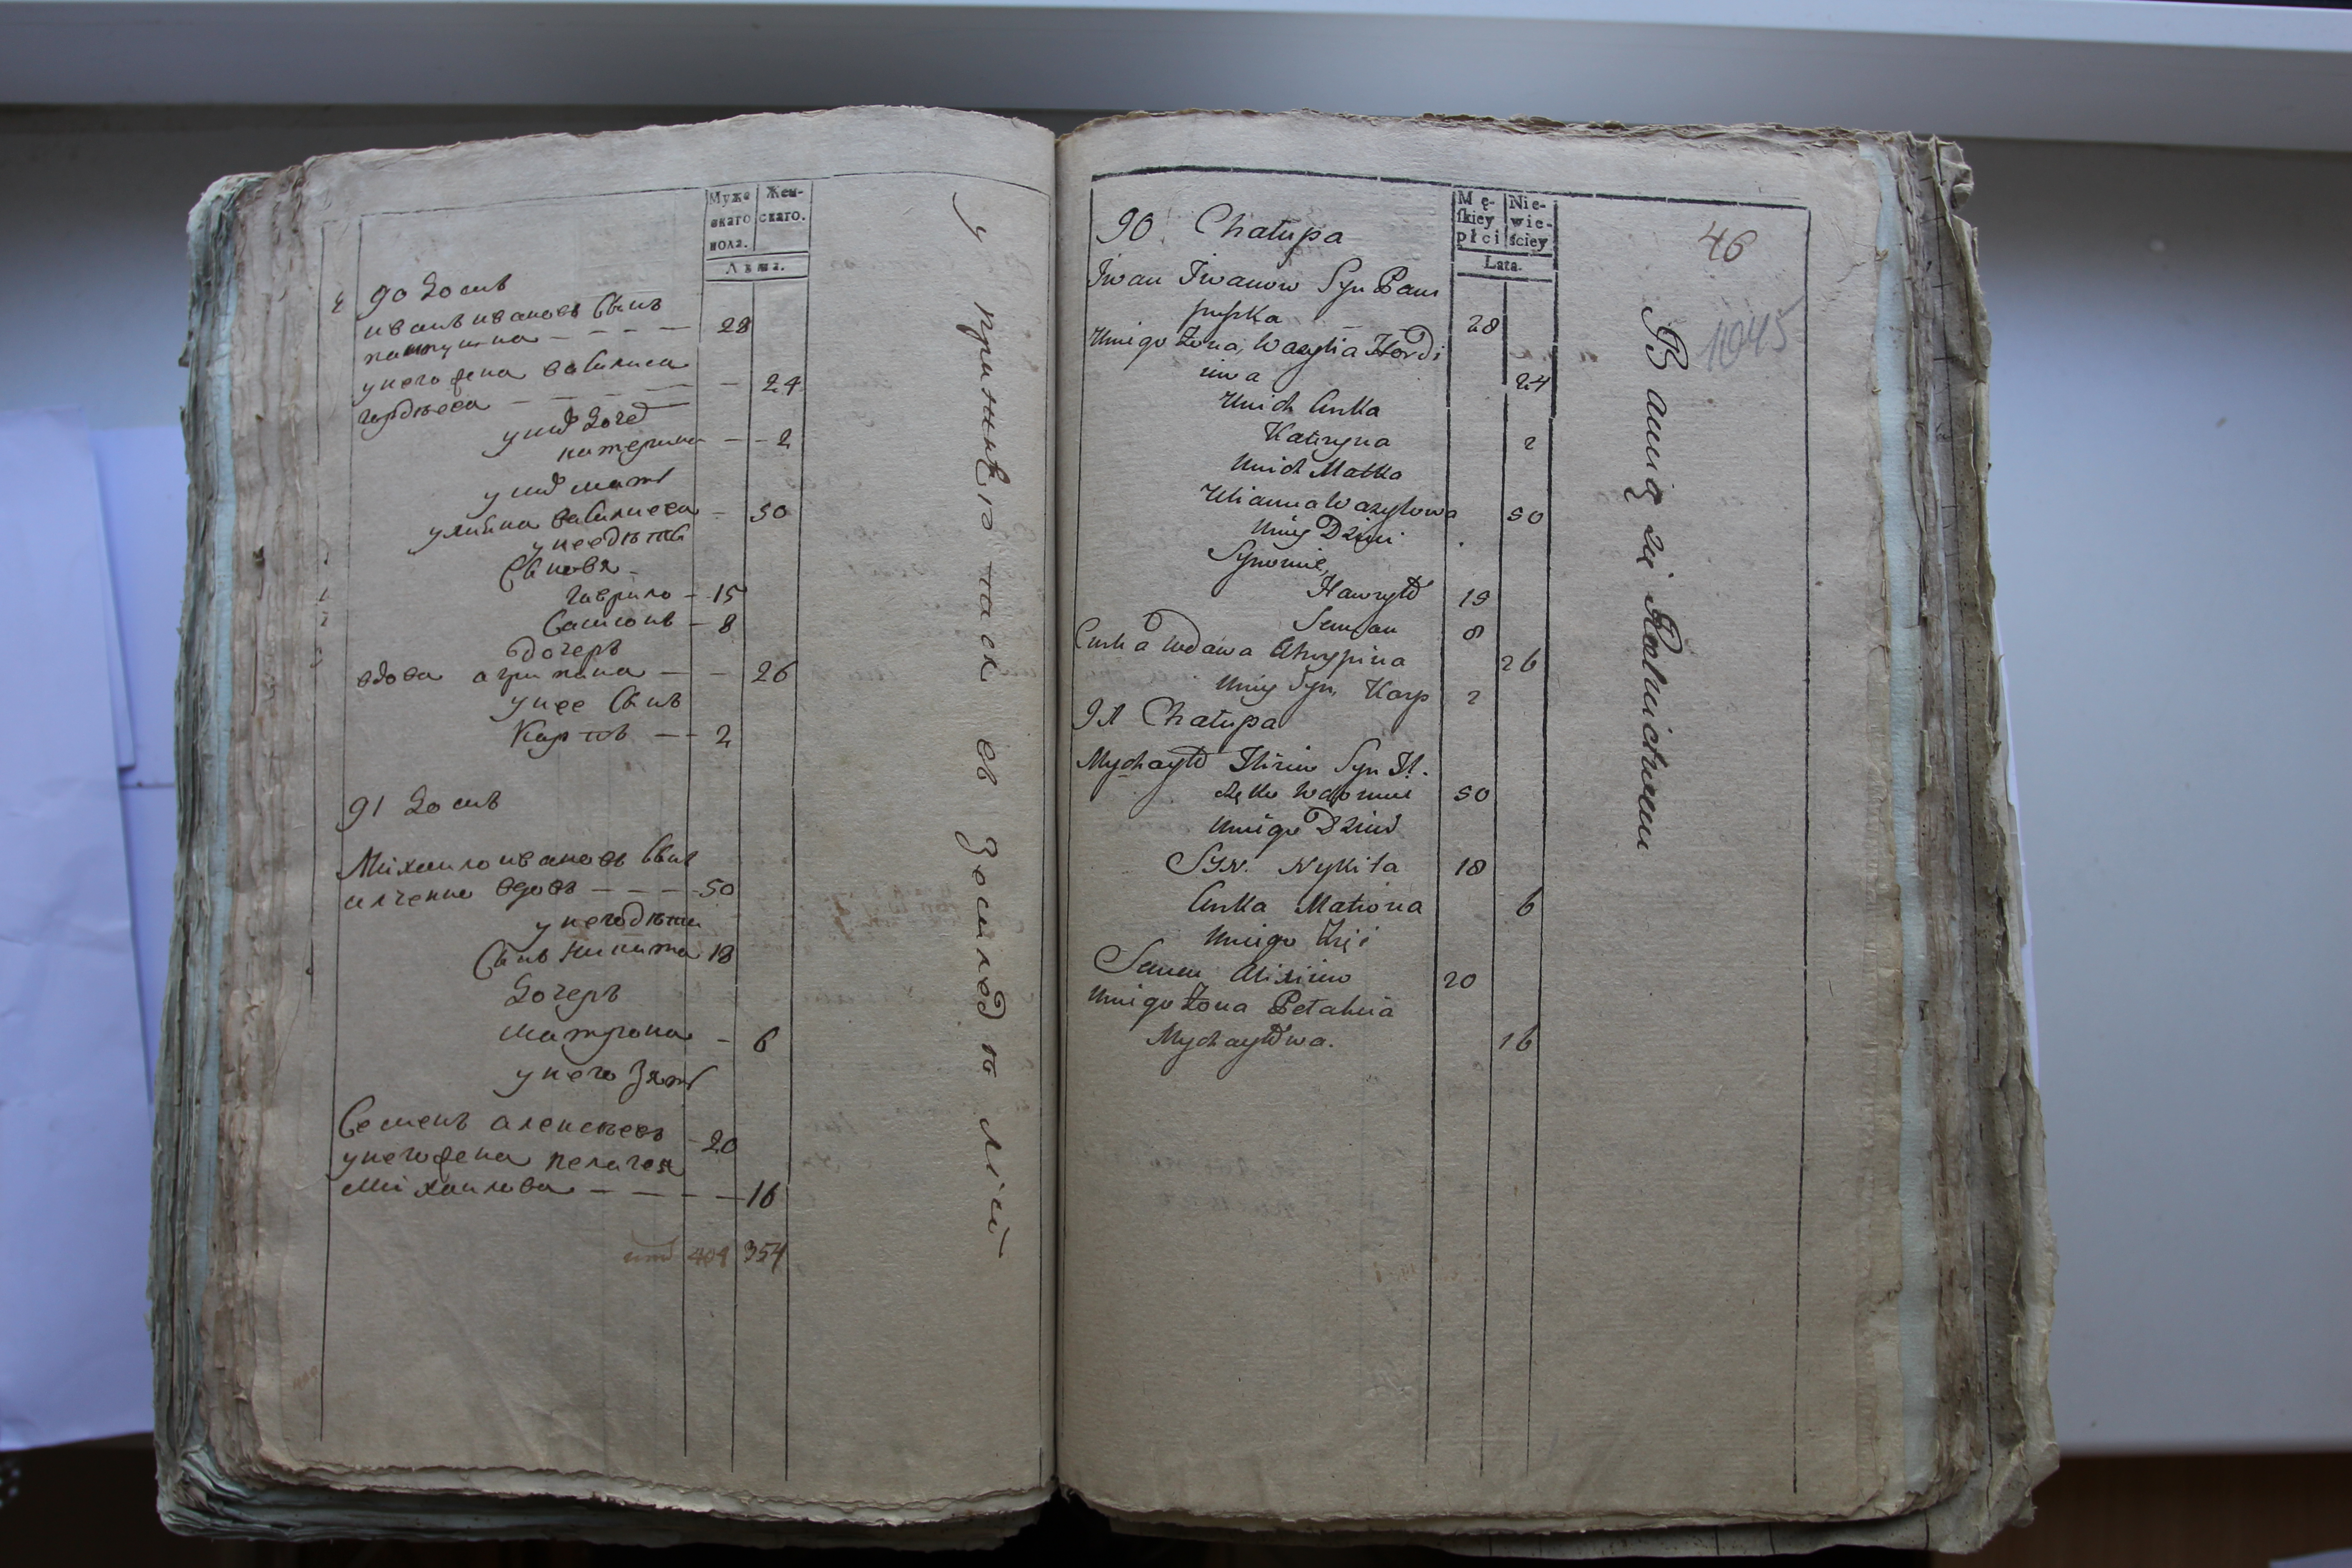 Муже
скаго
пола.
Жен-
скаго.
Лѣта.
90 Домъ
иванъ ивановъ Сынъ
28
у него жена василиса
гордѣева 24
у них доч
катерина 2
у них мать
улиана василиева 50
у нее дѣти
Сыновя
гаврило 15
Самсонъ 8
дочерь
вдова агрипина 26
у нее Сынъ
Карпъ 2
91 Домъ
Михаило ивановъ Сынъ
илченко вдовъ 50
у него дѣти
Сынъ никита 18
Дочерь
матрона 6
у него Зять
Семенъ алексѣевъ 20
у него жена пелагея
михаилова 16
354
упражняются въ земледѣлiи
46
1045
Mę-
skiey
płci
Nie-
wie-
ściey
Lata.
90 Chałupa
Iwan Iwanow Syn Pam
puszka 28
Uniego Żona, Wasylia Hordi
iwa 24
Unich Curka
Kateryna 2
Unich Matka
Ulianna Wasylowa 50
Uniey Dzieci
Synowie,
Hawryło 15
Semian 8
Curka Wdowa Ahrypina 26
Uniey Syn, Karp 2
91 Chałupa
Mychayło Syn Il-
częko Wdowiec 50
Unigo Dzieci
Syn. Nykita 18
Curka Matrona 6
Unigo Zięć
Semen Alixiiew 20
Unigo Żona Petahiia
Mychayłowa. 16
Bawią się Rolnictwem